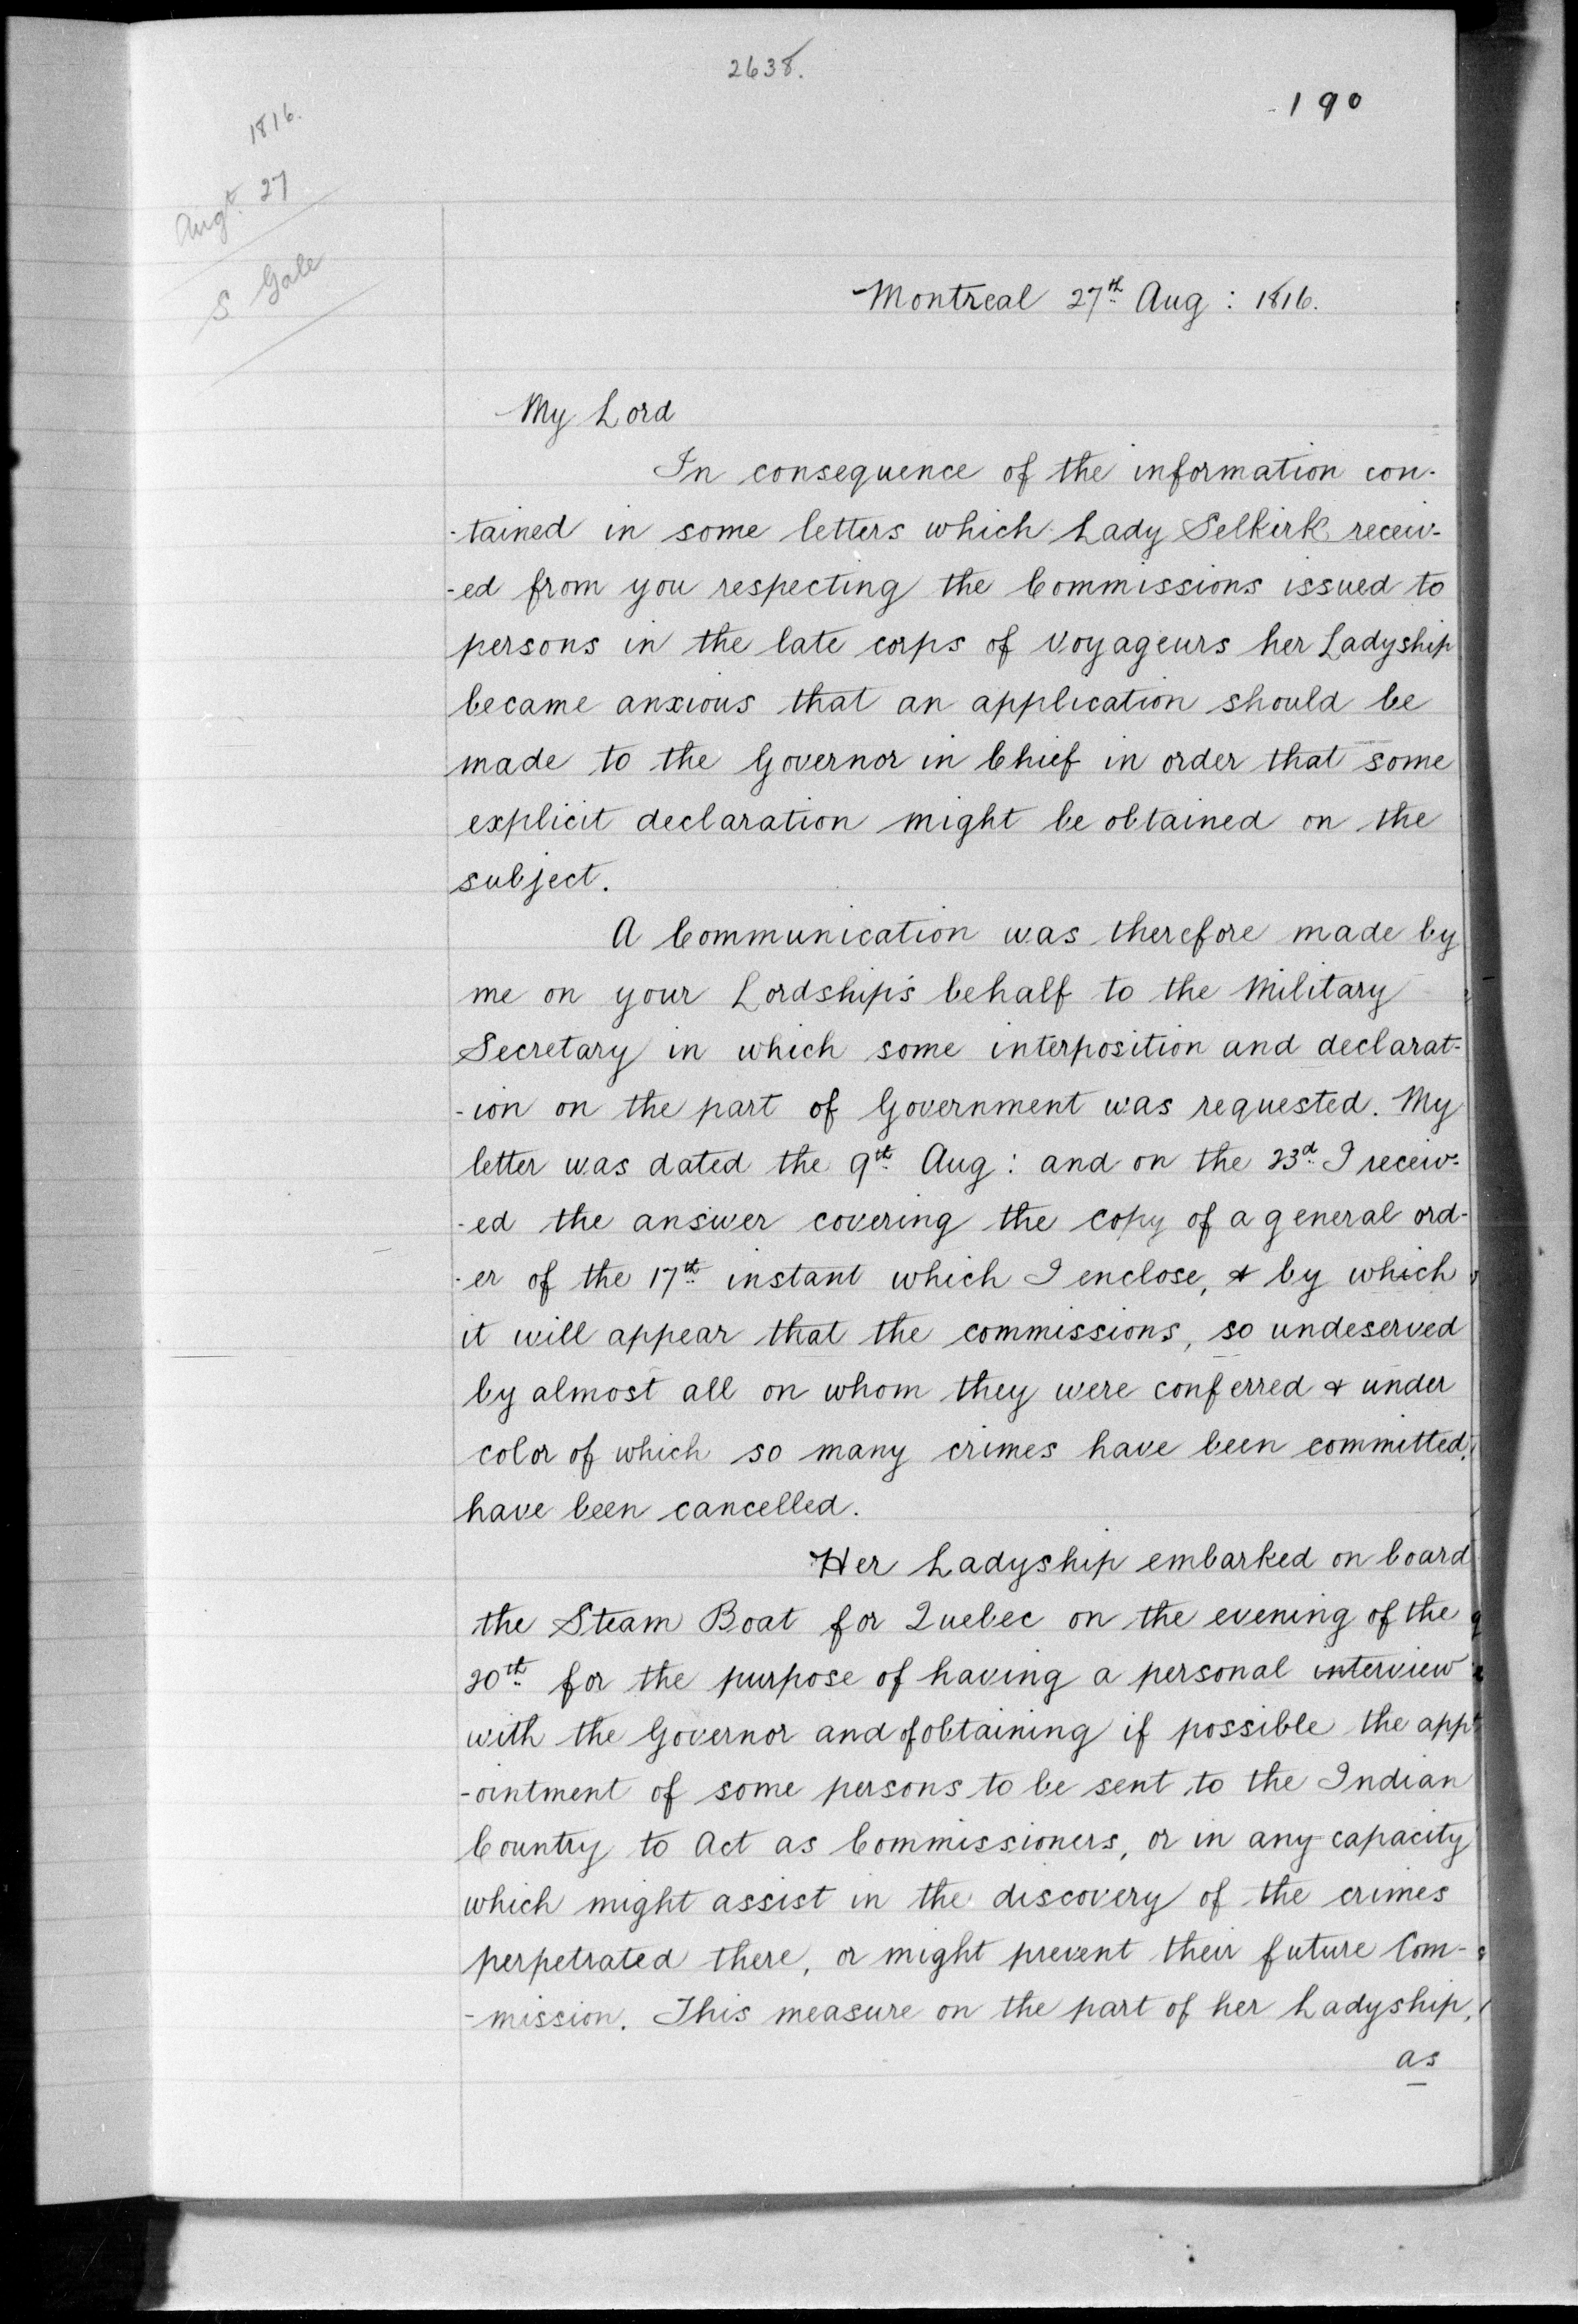 2638.
190
1816.
Augt. 27
S Gale
Montreal 27th Aug: 1816.
My Lord
In consequence of the information con-
-tained in some letters which Lady Selkirk receiv-
-ed from you respecting the Commissions issued to
persons in the late corps of Voyageurs her Ladyship
became anxious that an application should be
made to the Governor in Chief in order that some
explicit declaration might be obtained on the
subject.
A Communication was therefore made by
me on your Lordship's behalf to the Military
Secretary in which some interposition and declarat-
-ion on the part of Government was requested. My
letter was dated the 9th Aug: and on the 23d I receiv-
-ed the answer covering the copy of a general ord-
-er of the 17th instant which I enclose, & by which
it will appear that the commissions, so undeserved
by almost all on whom they were conferred & under
color of which so many crimes have been committed,
have been cancelled.
Her Ladyship embarked on board
the Steam Boat for Quebec on the evening of the
20th for the purpose of having a personal interview
with the Governor and of obtaining if possible the app-
-ointment of some persons to be sent to the Indian
Country to Act as Commissioners, or in any capacity
which might assist in the discovery of the crimes
perpetrated there, or might prevent their future Com-
-mission. This measure on the part of her Ladyship,
as